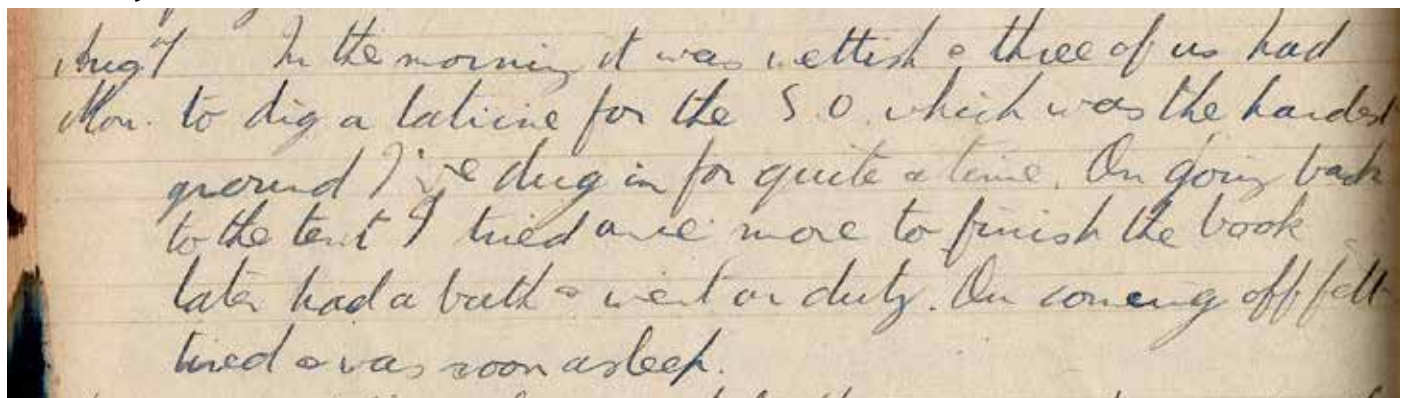 Aug 7 In the morning it was wettish & three of us had
Mon. to dig a latrine for the S.O. which was the hardest
ground I've dug in for quite a time. On going back
to the tent I tried once more to finish the book
later had a bath & went on duty. On coming off felt
tired & was soon asleep.